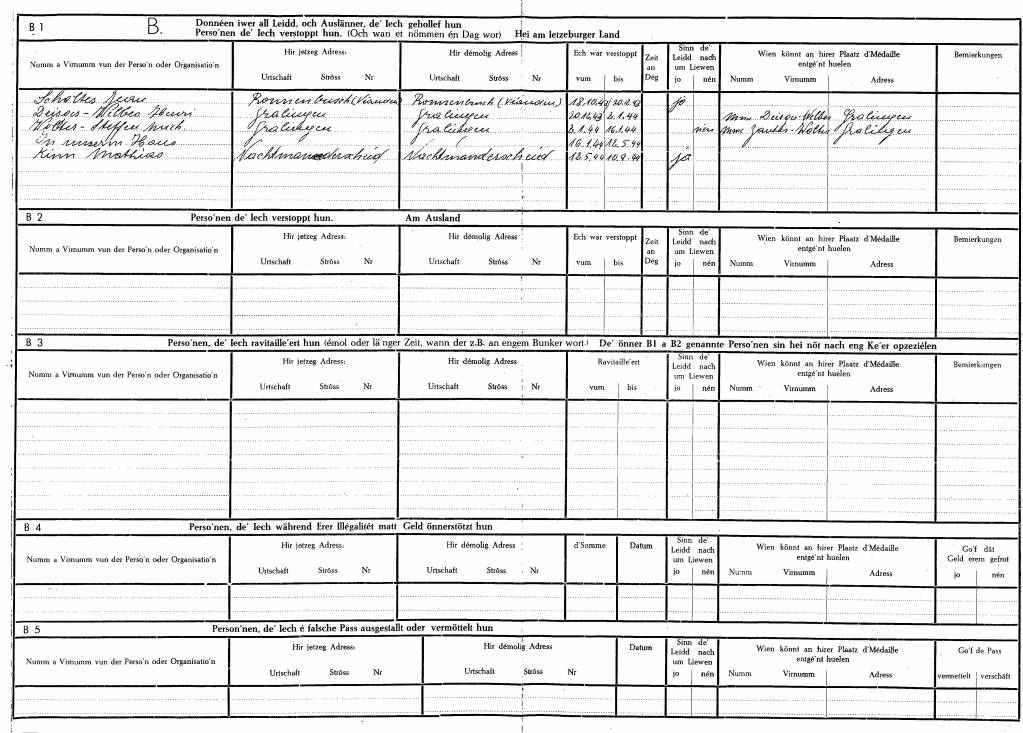 B 1 B. Donnéen iwer all Leidd, och Auslänner, de' Iech gehollef hun
Perso'nen de' Iech verstoppt hun. (Och wan et nömmen én Dag wor) Hei am letzeburger Land
Numm a Virnumm vun der Perso'n oder Organisatio'n Hir jetzeg Adress: Hir démolig Adress Ech war verstoppt Zeit an Dég Sinn de' Leidd nach um Liewen Wien könnt an hirer Plaatz d'Médaille entgé'nt huelen Bemierkungen
Urtschaft Ströss Nr Urtschaft Ströss Nr vum bis jo nén Numm Virnumm Adress
Scholtes Jean Ronnenbusch (Vianden) Ronnenbusch (Vianden) 18.10.43 20.12.43 jo
Deisges-Welbes Henri Gralingen Gralingen 20.12.43 2.1.44 Mme Deisges-Welbes Gralingen
Wolter-Steffen Mich. Gralingen Gralingen 2.1.44 16.1.44 nén Mme Zanter-Wolter Gralingen
In unserm Haus 16.1.44 12.5.44
Kinn Mathias Nachtmanderscheid Nachtmanderscheid 12.5.44 10.9.44 ja
B 2 Perso'nen de' Iech verstoppt hun. Am Ausland
Numm a Virnumm vun der Perso'n oder Organisatio'n Hir jetzeg Adress: Hir démolig Adress Ech war verstoppt Zeit an Dég Sinn de' Leidd nach um Liewen Wien könnt an hirer Plaatz d'Médaille entgé'nt huelen Bemierkungen
Urtschaft Ströss Nr Urtschaft Ströss Nr vum bis jo nén Numm Virnumm Adress
B 3 Perso'nen, de' Iech ravitaille'ert hun (émol oder länger Zeit, wann der z.B. an engem Bunker wort.) De' önner B1 a B2 genannte Perso'nen sin hei nöt nach eng Ke'er opzeziélen
Numm a Virnumm vun der Perso'n oder Organisatio'n Hir jetzeg Adress: Hir démolig Adress Ravitaille'ert Sinn de' Leidd nach um Liewen Wien könnt an hirer Plaatz d'Médaille entgé'nt huelen Bemierkungen
Urtschaft Ströss Nr Urtschaft Ströss Nr vum bis jo nén Numm Virnumm Adress
B 4 Perso'nen, de' Iech während Erer Illégalitét matt Geld önnerstötzt hun
Numm a Virnumm vun der Perso'n oder Organisatio'n Hir jetzeg Adress: Hir démolig Adress d'Somme Datum Sinn de' Leidd nach um Liewen Wien könnt an hirer Plaatz d'Médaille entgé'nt huelen Go'f dât Geld erem gefrot
Urtschaft Ströss Nr Urtschaft Ströss Nr jo nén Numm Virnumm Adress jo nén
B 5 Person'nen, de' Iech é falsche Pass ausgestallt oder vermöttelt hun
Numm a Virnumm vun der Perso'n oder Organisatio'n Hir jetzeg Adress: Hir démolig Adress Datum Sinn de' Leidd nach um Liewen Wien könnt an hirer Plaatz d'Médaille entgé'nt huelen Go'f de Pass
Urtschaft Ströss Nr Urtschaft Ströss Nr jo nén Numm Virnumm Adress vermettelt verschâft